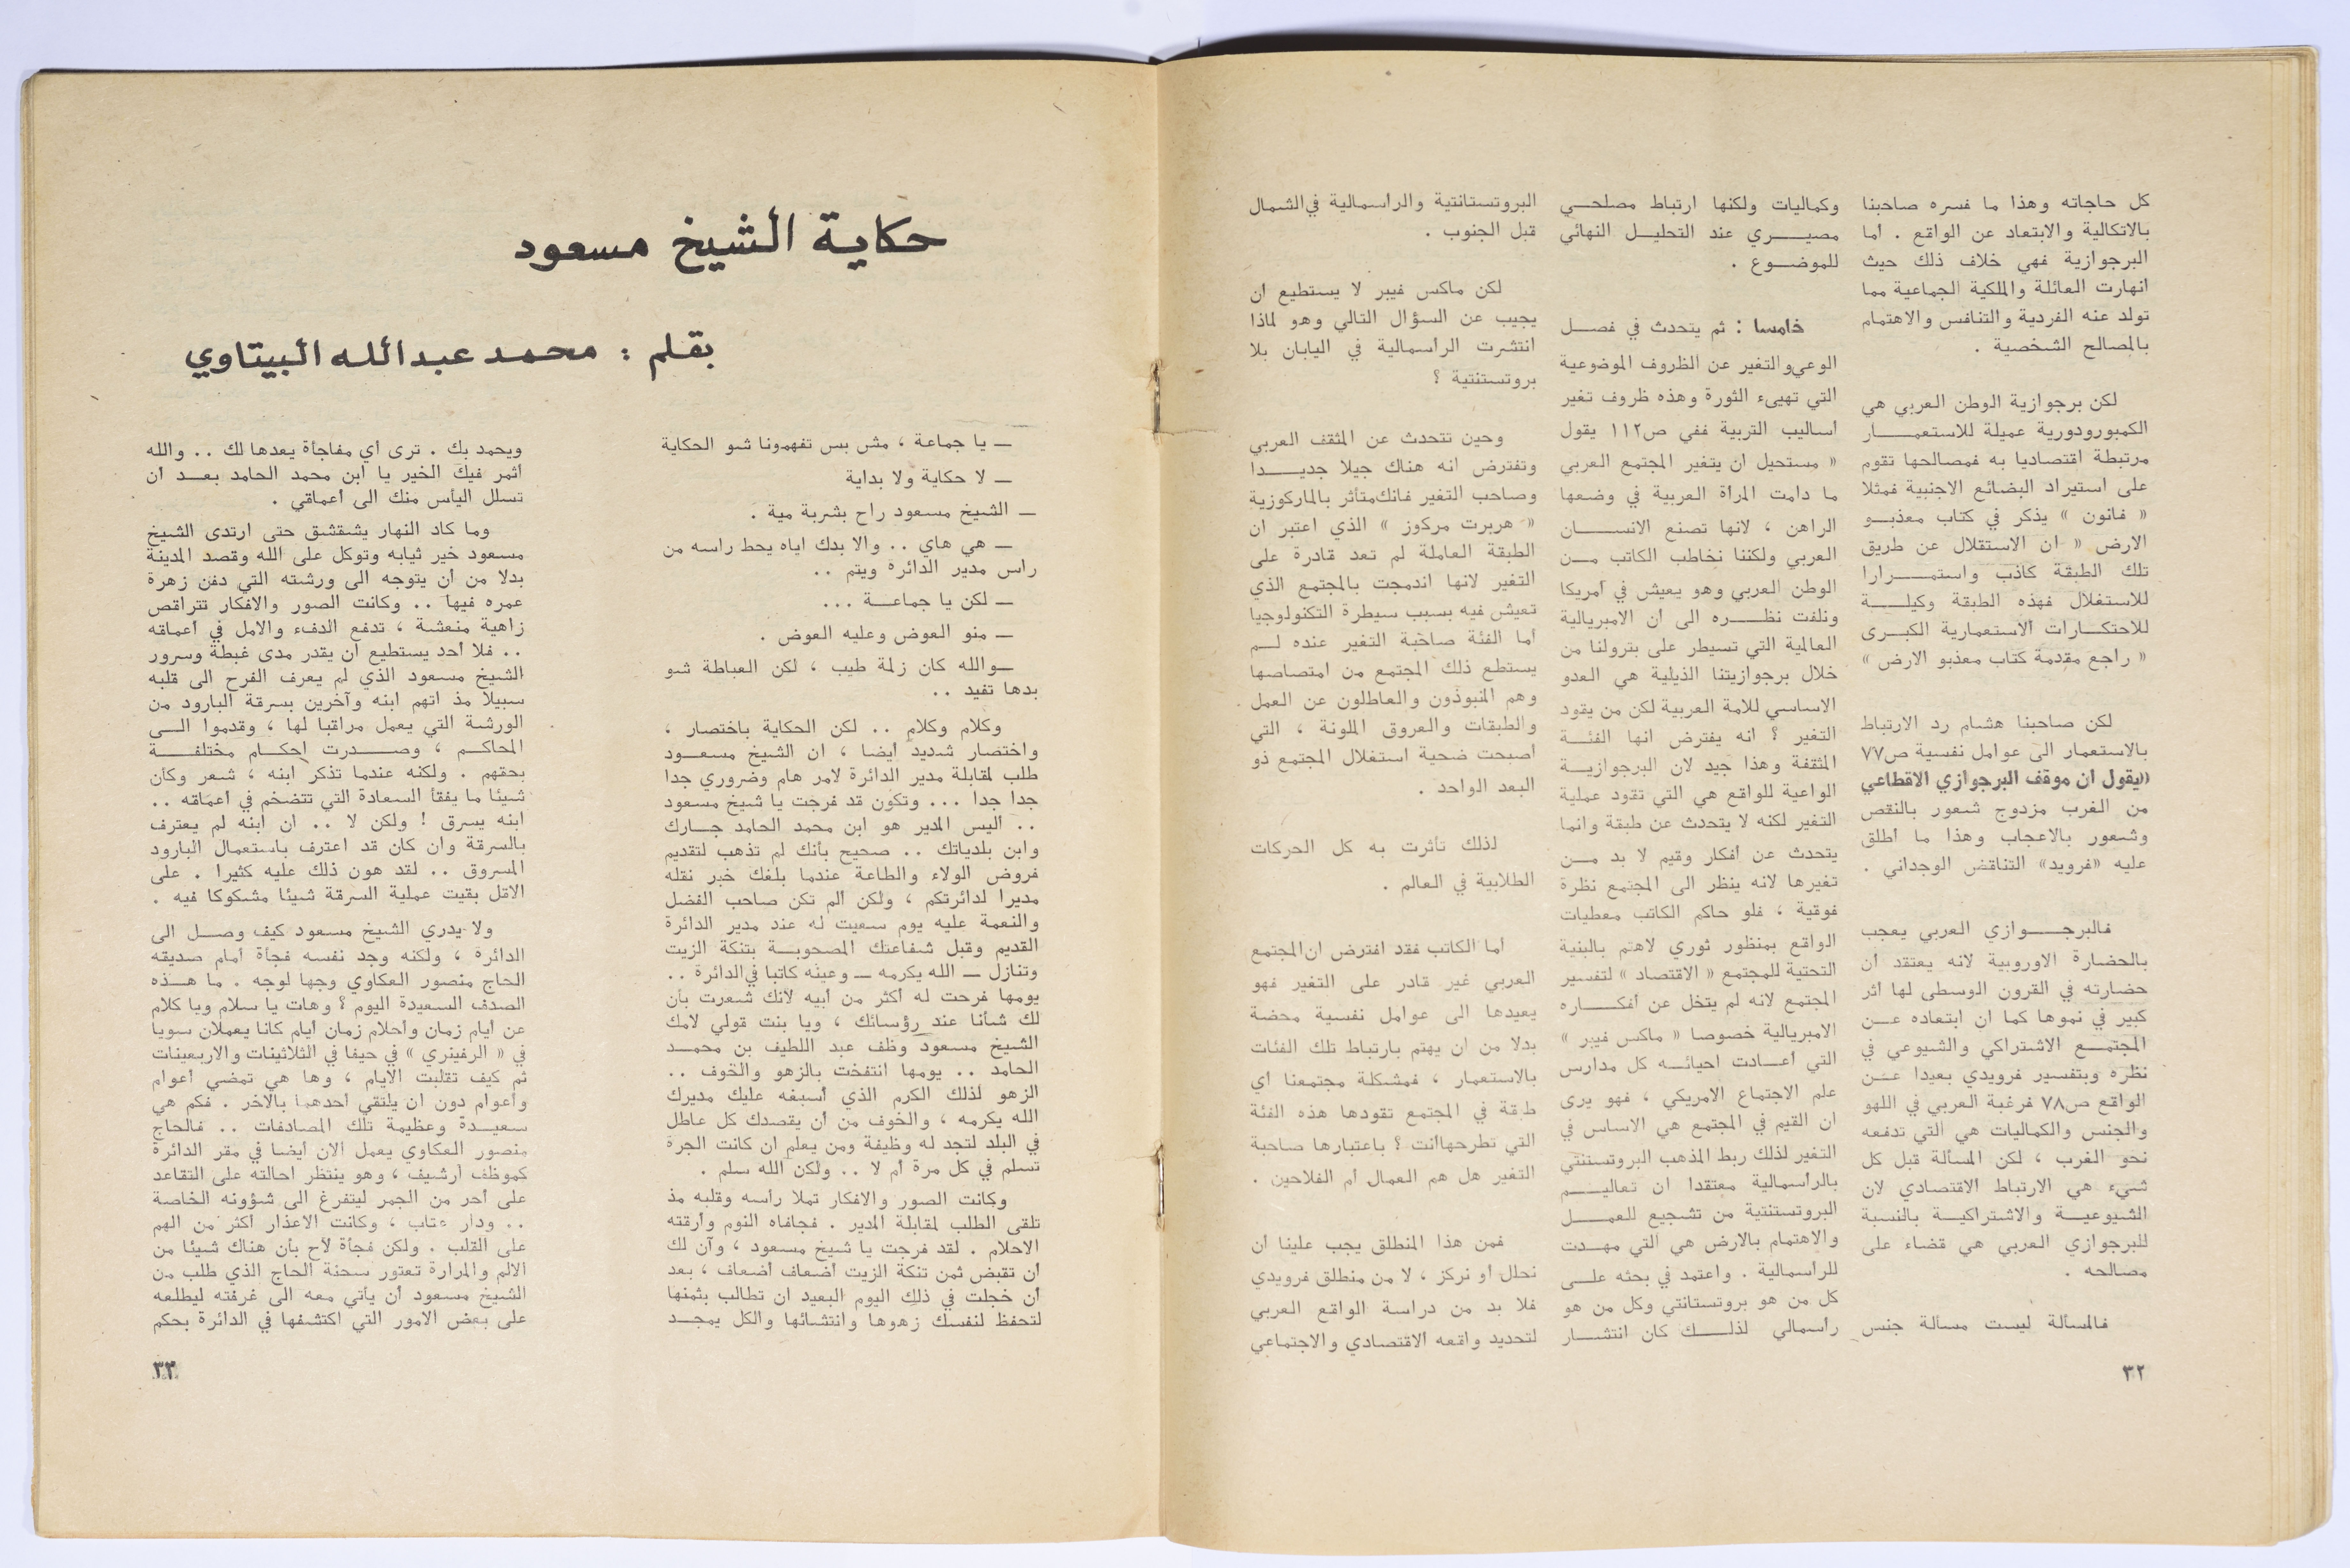 كل حاجاته وهذا ما فسره صاحبنا
بالاتكالية والابتعاد عن الواقع . اما
البرجوازية فهي خلاف ذلك حيث
انهارت العائلة والملكية الجماعية مما
تولد عنه الفردية والتنافس والاهتمام
بالمصالح الشخصية .
لكن برجوازية الوطن العربي هي
الكمبورودورية عميلة للاستعمــــار
مرتبطة اقتصاديا به فمصالحها تقوم
على استيراد البضائع الاجنبية فمثلا
« فانون » يذكر في كتاب معذبــو
الارض « ان الاستقلال عن طريق
تلك الطبقة كاذب واستمــــرارا
للاستغلال فهذه الطبقة وكيلــــة
للاحتكــارات الاستعمارية الكبــرى
« راجع مقدمة كتاب معذبو الارض »
لكن صاحبنا هشام رد الارتباط
بالاستعمار الى عوامل نفسية ص٧٧
«يقول ان موقف البرجوازي الاقطاعي
من الغرب مزدوج شعور بالنقص
وشعور بالاعجاب وهذا ما اطلق
عليه «فرويد» التناقض الوجداني .
فالبرجــــوازي العربي يعجب
بالحضارة الاوروبية لانه يعتقد ان
حضارته في القرون الوسطى لها اثر
كبير في نموها كما ان ابتعاده عــن
المجتمــع الاشتراكي والشيوعي في
نظره وبتفسير فرويدي بعيدا عــن
الواقع ص٧٨ فرغبة العربي في اللهو
والجنس والكماليات هي التي تدفعه
نحو الغرب ، لكن المسألة قبل كل
شيء هي الارتباط الاقتصادي لان
الشيوعيــة والاشتراكيــة بالنسبة
للبرجوازي العربي هي قضاء على
مصالحه .
فالمسألة ليست مسألة جنس
وكماليات ولكنها ارتباط مصلحــي
مصيــــري عند التحليــل النهائي
للموضــوع .
خامسا : ثم يتحدث في فصــل
الوعي والتغير عن الظروف الموضوعية
التي تهيىء الثورة وهذه ظروف تغير
اساليب التربية ففي ص١١٢ يقول
« مستحيل ان يتغير المجتمع العربي
ما دامت المرأة العربية في وضعها
الراهن ، لانها تصنع الانســــان
العربي ولكننا نخاطب الكاتب مــن
الوطن العربي وهو يعيش في أمريكا
ونلفت نظــــره الى أن الامبريالية
العالمية التي تسيطر على بترولنا من
خلال برجوازيتنا الذيلية هي العدو
الاساسي للامة العربية لكن من يقود
التغير ؟ انه يفترض انها الفئــة
المثقفة وهذا جيد لان البرجوازيــة
الواعية للواقع هي التي تقود عملية
التغير لكنه لا يتحدث عن طبقة وانما
يتحدث عن أفكار وقيم لا بد مــن
تغيرها لانه ينظر الى المجتمع نظرة
فوقية ، فلو حاكم الكاتب معطيات
الواقع بمنظور ثوري لاهتم بالبنية
التحتية للمجتمع « الاقتصاد » لتفسير
المجتمع لانه لم يتخل عن أفكــــاره
الامبريالية خصوصا « ماكس فيبر »
التي اعــادت احيائــه كل مدارس
علم الاجتماع الامريكي ، فهو يرى
ان القيم في المجتمع هي الاساس في
التغير لذلك ربط المذهب البروتستنتي
بالرأسمالية معتقدا ان تعاليــــم
البروتستنتية من تشجيع للعمــــل
والاهتمام بالارض هي التي مهــدت
للرأسمالية . واعتمد في بحثه علــى
كل من هو بروتستانتي وكل من هو
رأسمالي لذلــــك كان انتشــــار
البروتستانتية والراسمالية في الشمال
قبل الجنوب .
لكن ماكس فيبر لا يستطيع ان
يجيب عن السؤال التالي وهو لماذا
انتشرت الرأسمالية في اليابان بلا
بروتستنتية ؟
وحين تتحدث عن المثقف العربي
وتفترض انه هناك جيلا جديــــدا
وصاحب التغير فانك متأثر بالماركوزية
« هربرت مركوز » الذي اعتبر ان
الطبقة العاملة لم تعد قادرة على
التغير لانها اندمجت بالمجتمع الذي
تعيش فيه بسبب سيطرة التكنولوجيا
أما الفئة صاحبة التغير عنده لــم
يستطع ذلك المجتمع من امتصاصها
وهم المنبوذون والعاطلون عن العمل
والطبقات والعروق الملونة ، التي
اصبحت ضحية استغلال المجتمع ذو
البعد الواحد .
لذلك تأثرت به كل الحركات
الطلابية في العالم .
أما الكاتب فقد افترض ان المجتمع
العربي غير قادر على التغير فهو
يعيدها الى عوامل نفسية محضة
بدلا من ان يهتم بارتباط تلك الفئات
بالاستعمار ، فمشكلة مجتمعنا أي
طبقة في المجتمع تقودها هذه الفئة
التي تطرحها انت ؟ باعتبارها صاحبة
التغير هل هم العمال أم الفلاحين .
فمن هذا المنطلق يجب علينا ان
نحلل او نركز ، لا من منطلق فرويدي
فلا بد من دراسة الواقع العربي
لتحديد واقعه الاقتصادي والاجتماعي
٣٢
حكاية الشيخ مسعود
بقلم : محمد عبدالله البيتاوي
ــ يا جماعة ، مش بس تفهمونا شو الحكاية
ــ لا حكاية ولا بداية
ــ الشيخ مسعود راح بشربة مية .
ــ هي هاي .. والا بدك اياه يحط راسه من
راس مدير الدائرة ويتم ..
ــ لكن يا جماعــة ...
ــ منو العوض وعليه العوض .
ــ والله كان زلمة طيب ، لكن العباطة شو
بدها تفيد ..
وكلام وكلام .. لكن الحكاية باختصار ،
واختصار شديد أيضا ، ان الشيخ مسعــود
طلب لمقابلة مدير الدائرة لامر هام وضروري جدا
جدا جدا ... وتكون قد فرجت يا شيخ مسعود
.. أليس المدير هو ابن محمد الحامد جــارك
وابن بلدياتك .. صحيح بأنك لم تذهب لتقديم
فروض الولاء والطاعة عندما بلغك خبر نقله
مديرا لدائرتكم ، ولكن ألم تكن صاحب الفضل
والنعمة عليه يوم سعيت له عند مدير الدائرة
القديم وقبل شفاعتك المصحوبــة بتنكة الزيت
وتنازل ــ الله يكرمه ــ وعينه كاتبا في الدائرة ..
يومها فرحت له أكثر من أبيه لأنك شعرت بأن
لك شأنا عند رؤسائك ، ويا بنت قولي لامك
الشيخ مسعود وظف عبد اللطيف بن محمــد
الحامد .. يومها انتفخت بالزهو والخوف ..
الزهو لذلك الكرم الذي أسبغه عليك مديرك
الله يكرمه ، والخوف من أن يقصدك كل عاطل
في البلد لتجد له وظيفة ومن يعلم ان كانت الجرة
تسلم في كل مرة أم لا .. ولكن الله سلم .
وكانت الصور والافكار تملأ رأسه وقلبه مذ
تلقى الطلب لمقابلة المدير . فجافاه النوم وأرقته
الاحلام . لقد فرجت يا شيخ مسعود ، وآن لك
أن تقبض ثمن تنكة الزيت أضعاف أضعاف ، بعد
أن خجلت في ذلك اليوم البعيد ان تطالب بثمنها
لتحفظ لنفسك زهوها وانتشائها والكل يمجــد
ويحمد بك . ترى أي مفاجأة يعدها لك .. والله
أثمر فيك الخير يا ابن محمد الحامد بعــد ان
تسلل اليأس منك الى أعماقي .
وما كاد النهار يشقشق حتى ارتدى الشيخ
مسعود خير ثيابه وتوكل على الله وقصد المدينة
بدلا من أن يتوجه الى ورشته التي دفن زهرة
عمره فيها .. وكانت الصور والافكار تتراقص
زاهية منعشة ، تدفع الدفء والامل في أعماقه
.. فلا أحد يستطيع أن يقدر مدى غبطة وسرور
الشيخ مسعود الذي لم يعرف الفرح الى قلبه
سبيلا مذ اتهم ابنه وآخرين بسرقة البارود من
الورشة التي يعمل مراقبا لها ، وقدموا الــى
المحاكــم ، وصــــدرت احكــام مختلفــــة
بحقهم . ولكنه عندما تذكر ابنه ، شعر وكأن
شيئا ما يفقأ السعادة التي تتضخم في أعماقه ..
ابنه يسرق ! ولكن لا .. ان ابنه لم يعترف
بالسرقة وان كان قد اعترف باستعمال البارود
المسروق .. لقد هون ذلك عليه كثيرا . على
الاقل بقيت عملية السرقة شيئا مشكوكا فيه .
ولا يدري الشيخ مسعود كيف وصــل الى
الدائرة ، ولكنه وجد نفسه فجأة أمام صديقه
الحاج منصور العكاوي وجها لوجه . ما هــذه
الصدف السعيدة اليوم ؟ وهات يا سلام ويا كلام
عن أيام زمان وأحلام زمان أيام كانا يعملان سويا
في « الرفينري » في حيفا في الثلاثينات والاربعينات
ثم كيف تقلبت الايام ، وها هي تمضي أعوام
وأعوام دون ان يلتقي أحدهما بالآخر . فكم هي
سعيــدة وعظيمة تلك المصادفات .. فالحاج
منصور العكاوي يعمل الآن أيضا في مقر الدائرة
كموظف أرشيف ، وهو ينتظر احالته على التقاعد
على أحر من الجمر ليتفرغ الى شؤونه الخاصة
.. ودار عتاب ، وكانت الاعذار اكثر من الهم
على القلب . ولكن فجأة لاح بأن هناك شيئا من
الالم والمرارة تعتور سحنة الحاج الذي طلب من
الشيخ مسعود أن يأتي معه الى غرفته ليطلعه
على بعض الامور التي اكتشفها في الدائرة بحكم
٣٣